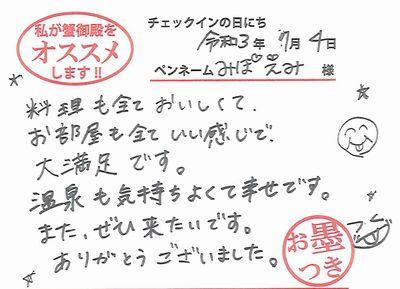 私が蟹御殿を
オススメ
します!!
チェックインの日にち
令和3年 7月 4日
ペンネーム みぽえみ 様
料理も全ておいしくて、
お部屋も全ていい感じで、
大満足です。
温泉も気持ちよくて幸せです。
また、ぜひ来たいです。
ありがとうございました。
お墨
つき